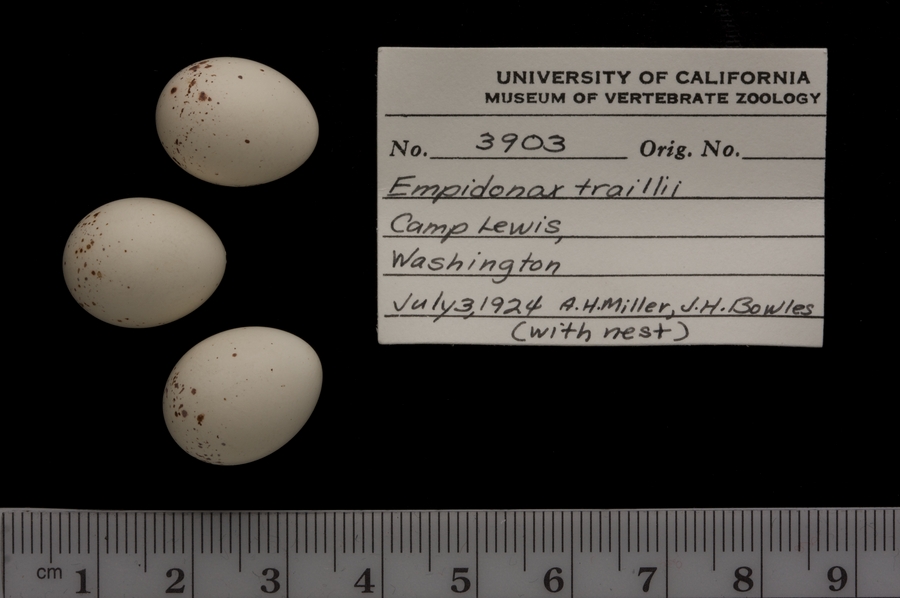 UNIVERSITY OF CALIFORNIA
MUSEUM OF VERTEBRATE ZOOLOGY
No. 3903 Orig. No.
Empidonax traillii
Camp Lewis,
Washington
July 3, 1924 A.H. Miller, J.H. Bowles
(with nest)
cm 1 2 3 4 5 6 7 8 9